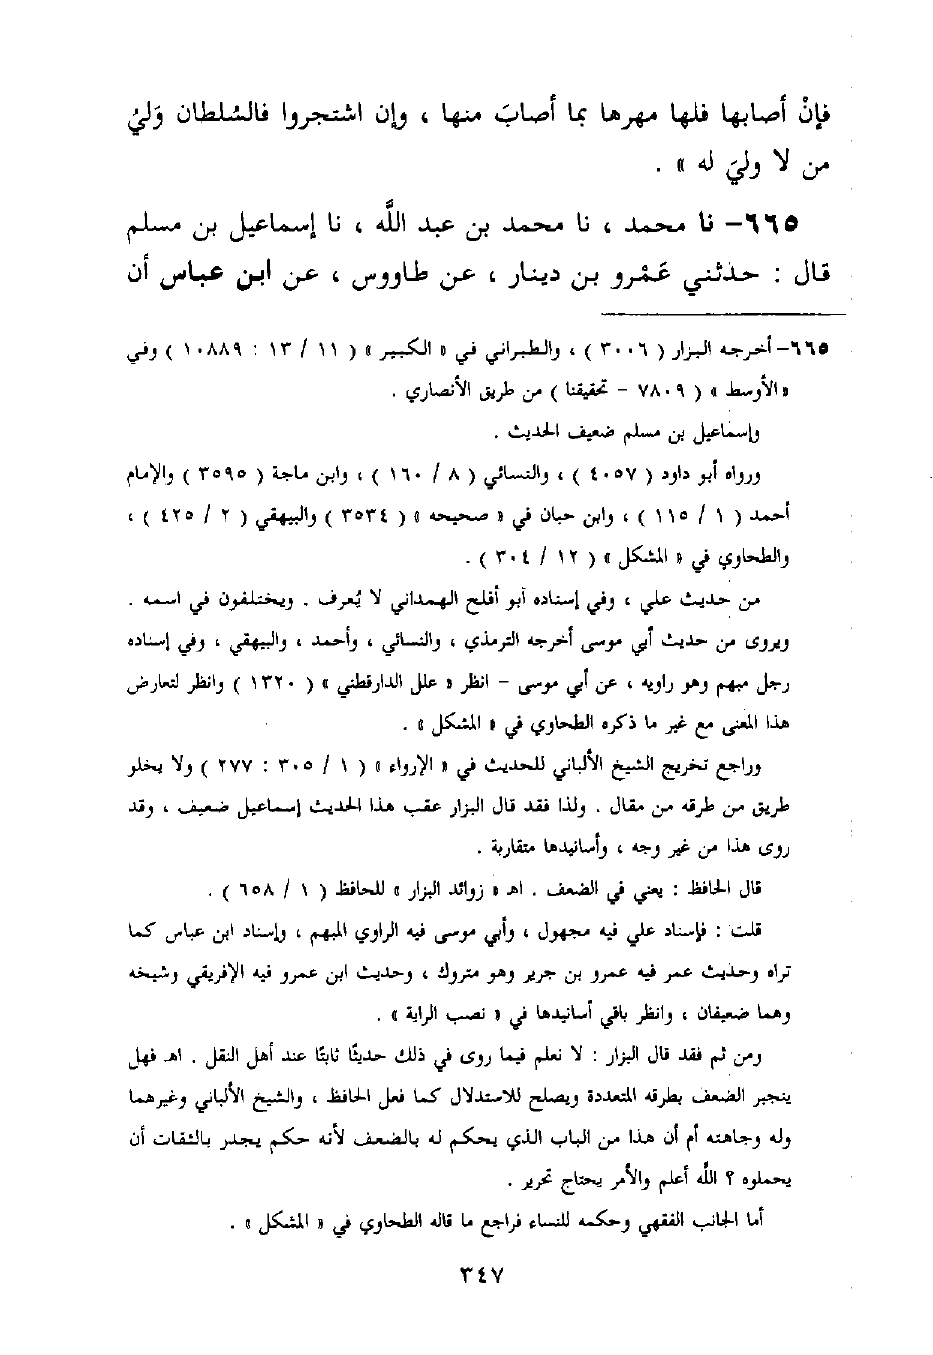 فإنْ أصابها فلها مهرها بما أصابَ منها ، وإن اشتجروا فالسُلطان وَليُ
من لا وليَ له » .
٦٦٥– نا محمد ، نا محمد بن عبد اللَّه ، نا إسماعيل بن مسلم
قال : حدثني عَمْرو بن دينار ، عن طاووس ، عن ابن عباس أن
٦٦٥– أخرجه البزار ( ٣٠٠٦ ) ، والطبراني في « الكبير » ( ١١ / ١٣ : ١٠٨٨٩ ) وفي
« الأوسط » ( ٧٨٠٩ – تحقيقنا ) من طريق الأنصاري .
وإسماعيل بن مسلم ضعيف الحديث .
ورواه أبو داود ( ٤٠٥٧ ) ، والنسائي ( ٨ / ١٦٠ ) ، وابن ماجة ( ٣٥٩٥ ) والإمام
أحمد ( ١ / ١١٥ ) ، وابن حبان في « صحيحه » ( ٣٥٣٤ ) والبيهقي ( ٢ / ٤٢٥ ) ،
والطحاوي في « المشكل » ( ١٢ / ٣٠٤ ) .
من حديث علي ، وفي إسناده أبو أفلح الهمداني لا يُعرف . ويختلفون في اسمه .
ويروى من حديث أبي موسى أخرجه الترمذي ، والنسائي ، وأحمد ، والبيهقي ، وفي إسناده
رجل مبهم وهو راويه ، عن أبي موسى – انظر « علل الدارقطني » ( ١٣٢٠ ) وانظر لتعارض
هذا المعنى مع غير ما ذكره الطحاوي في « المشكل » .
وراجع تخريج الشيخ الألباني للحديث في « الإرواء » ( ١ / ٣٠٥ : ٢٧٧ ) ولا يخلو
طريق من طرقه من مقال . ولذا فقد قال البزار عقب هذا الحديث إسماعيل ضعيف ، وقد
روى هذا من غير وجه ، وأسانيدها متقاربة .
قال الحافظ : يعني في الضعف . اهـ « زوائد البزار » للحافظ ( ١ / ٦٥٨ ) .
قلت : فإسناد علي فيه مجهول ، وأبي موسى فيه الراوي المبهم ، وإسناد ابن عباس كما
تراه وحديث عمر فيه عمرو بن جرير وهو متروك ، وحديث ابن عمرو فيه الإفريقي وشيخه
وهما ضعيفان ، وانظر باقي أسانيدها في « نصب الراية » .
ومن ثم فقد قال البزار : لا نعلم فيما روى في ذلك حديثًا ثابتًا عند أهل النقل . اهـ فهل
ينجبر الضعف بطرقه المتعددة ويصلح للاستدلال كما فعل الحافظ ، والشيخ الألباني وغيرهما
وله وجاهته أم أن هذا من الباب الذي يحكم له بالضعف لأنه حكم يجدر بالثقات أن
يحملوه ؟ اللَّه أعلم والأمر يحتاج تحرير .
أما الجانب الفقهي وحكمه للنساء فراجع ما قاله الطحاوي في « المشكل » .
٣٤٧